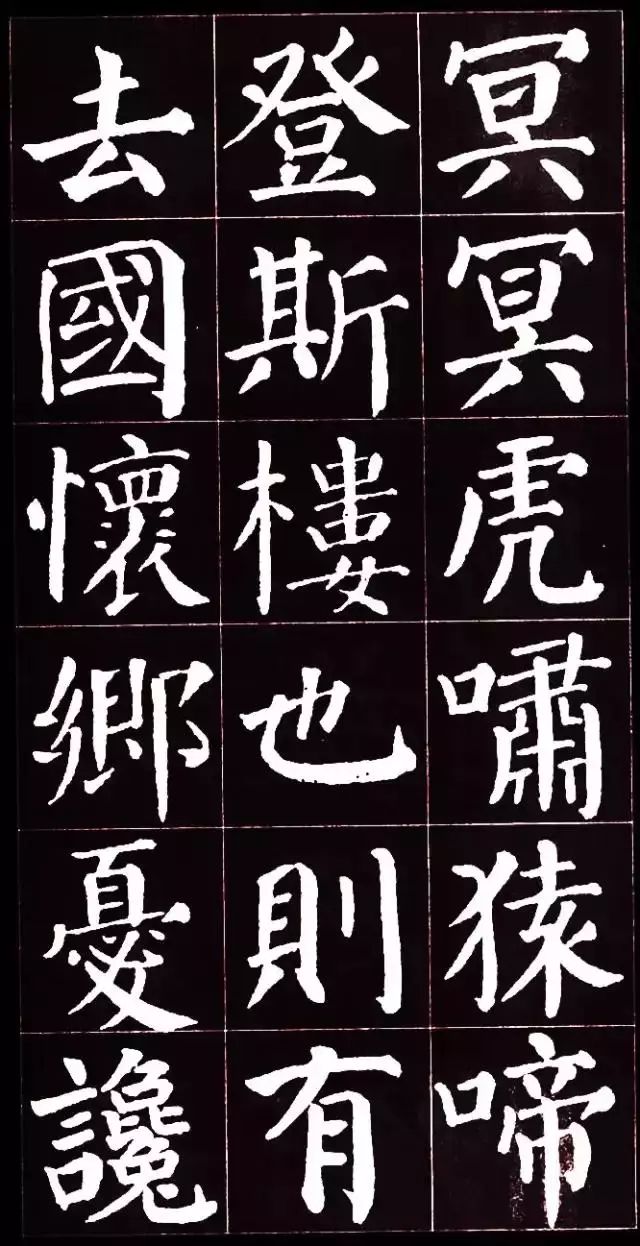 冥冥虎嘯猿啼
登斯樓也則有
去國懷鄉憂讒